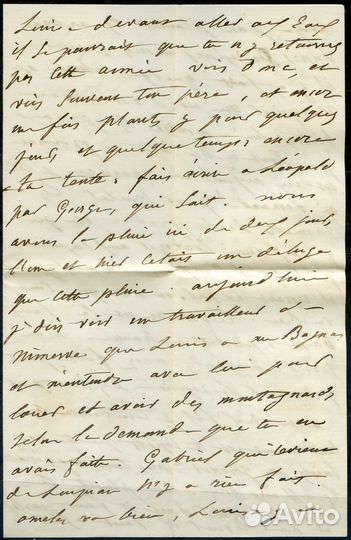 Louis devant aller aux Eaux
il se pourrait que tu n'y retournes
pas cette année viens donc, et
viens souvent ton père, et encore
une fois plants y pour quelques
jours et quelque temps encore
ta tente. fais écrire a Léopold
par George, qui sait. nous
avons la pluie ici de deux jours
l'un et hier c'était un déluge
que cette pluie. aujourd'hui
je dois voir un travailleur de
que Louis a vu
et m'entendre avec lui pour
louer et avoir des montagnards
selon la demande que tu en
avais faite. Gabriel qui revient
de n'y a rien fait.
va bien, Louis
Avito